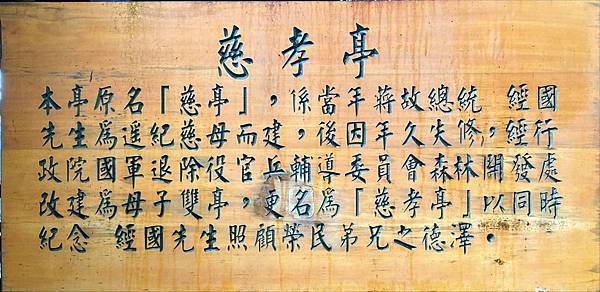 慈孝亭
本亭原名「慈亭」，係當年蔣故總統 經國
先生為遙紀慈母而建，後因年久失修，經行
政院國軍退除役官兵輔導委員會森林開發處
改建為母子雙亭，更名為「慈孝亭」以同時
紀念 經國先生照顧榮民弟兄之德澤。